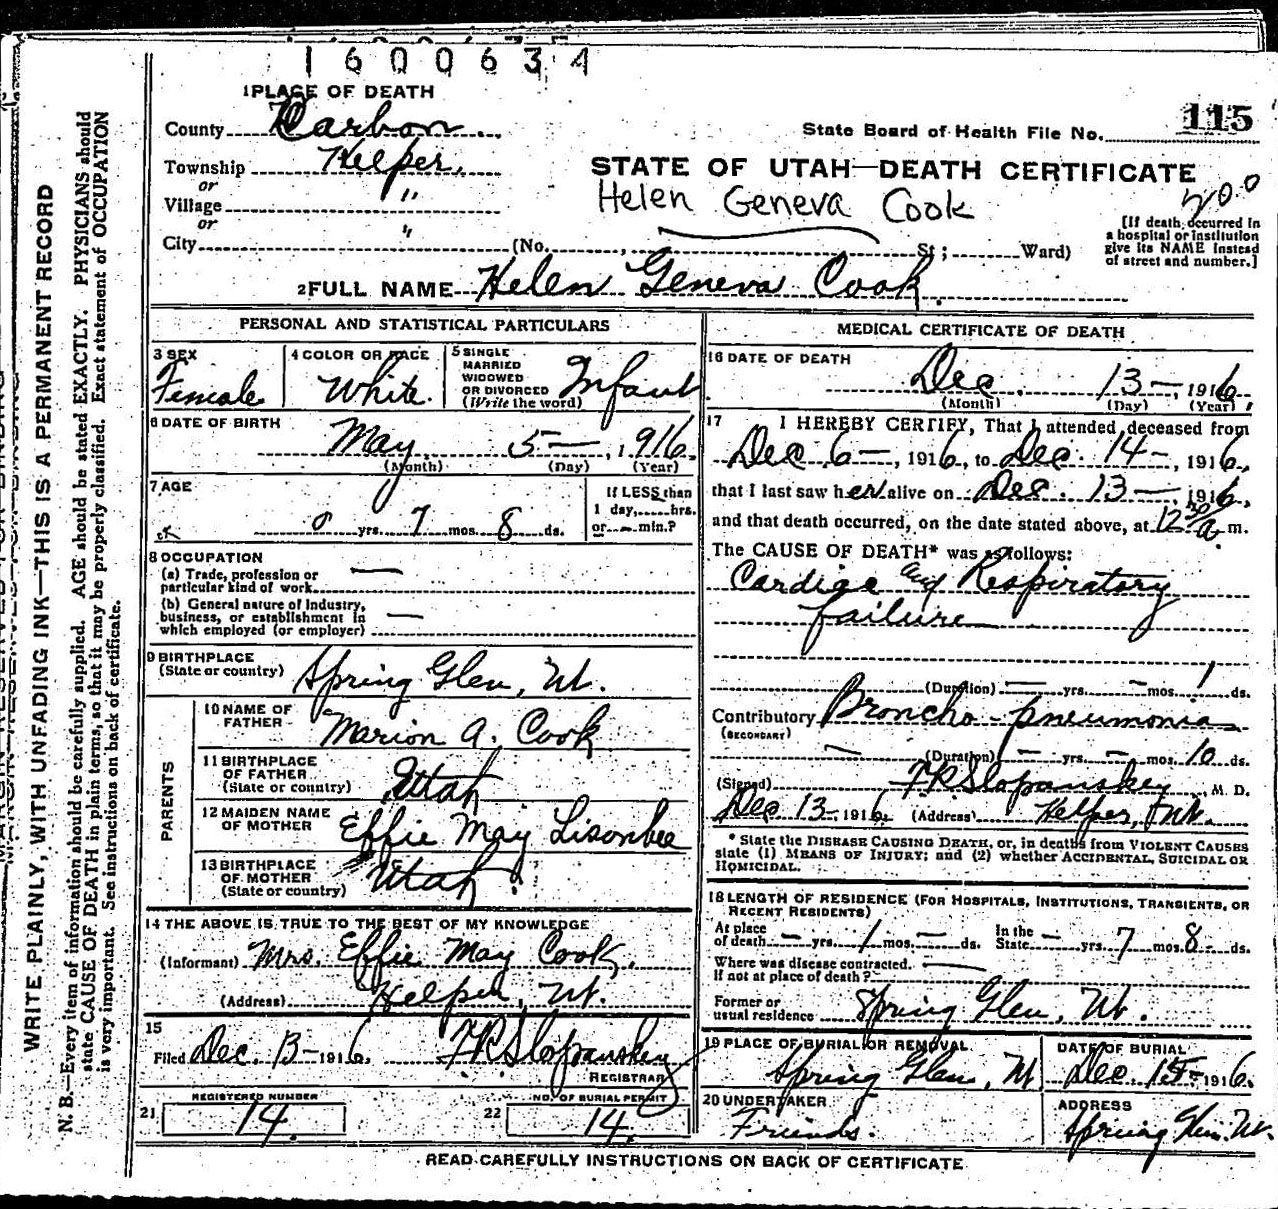 1 6 0 0 6 3 4
1 PLACE OF DEATH
County Carbon
State Board of Health File No. 115
Township Helper,
or
Village "
or
City " (No. , St ; Ward)
STATE OF UTAH—DEATH CERTIFICATE
Helen Geneva Cook
[If death occurred in
a hospital or institution
give its NAME instead
of street and number.]
2 FULL NAME Helen Geneva Cook.
PERSONAL AND STATISTICAL PARTICULARS
3 SEX
Female
4 COLOR OR RACE
White.
5 SINGLE
MARRIED
WIDOWED
OR DIVORCED
(Write the word)
Infant
6 DATE OF BIRTH
May 5—, 1916.
(Month) (Day) (Year)
7 AGE
0 yrs. 7 mos. 8 ds.
If LESS than
1 day, hrs.
or min.?
8 OCCUPATION
(a) Trade, profession or
particular kind of work —
(b) General nature of Industry,
business, or establishment in
which employed (or employer) —
9 BIRTHPLACE
(State or country) Spring Glen, Ut.
PARENTS
10 NAME OF
FATHER
Marion A. Cook
11 BIRTHPLACE
OF FATHER
(State or country)
Utah
12 MAIDEN NAME
OF MOTHER
Effie May Lisonbee
13 BIRTHPLACE
OF MOTHER
(State or country)
Utah
14 THE ABOVE IS TRUE TO THE BEST OF MY KNOWLEDGE
(Informant) Mrs. Effie May Cook,
(Address) Helper, Ut.
15
Filed Dec. 13— 1916, F R Slopanskey
REGISTRAR
21 REGISTERED NUMBER
14.
22 NO. OF BURIAL PERMIT
14.
MEDICAL CERTIFICATE OF DEATH
16 DATE OF DEATH
Dec. 13—, 1916,
(Month) (Day) (Year)
17 I HEREBY CERTIFY, That I attended deceased from
Dec 6—, 1916, to Dec. 14—, 1916,
that I last saw her alive on Dec. 13—, 1916,
and that death occurred, on the date stated above, at 12 30 a m.
The CAUSE OF DEATH* was as follows:
Cardiac and Respiratory
failure
(Duration) — yrs. — mos. 1 ds.
Contributory Broncho-pneumonia
(SECONDARY)
(Duration) — yrs. — mos. 10 ds.
(Signed) F R Slopanskey M. D.
Dec. 13— 1916. (Address) Helper, Ut.
* State the DISEASE CAUSING DEATH, or, in deaths from VIOLENT CAUSES
state (1) MEANS OF INJURY; and (2) whether ACCIDENTAL, SUICIDAL OR
HOMICIDAL.
18 LENGTH OF RESIDENCE (FOR HOSPITALS, INSTITUTIONS, TRANSIENTS, OR
RECENT RESIDENTS)
At place
of death — yrs. 1 mos. — ds.
In the
State — yrs. 7 mos. 8 ds.
Where was disease contracted.
If not at place of death? —
Former or
usual residence Spring Glen, Ut.
19 PLACE OF BURIAL OR REMOVAL
Spring Glen, Ut
DATE OF BURIAL
Dec. 15— 1916.
20 UNDERTAKER
Friends.
ADDRESS
Spring Glen. Ut.
READ CAREFULLY INSTRUCTIONS ON BACK OF CERTIFICATE
WRITE PLAINLY, WITH UNFADING INK—THIS IS A PERMANENT RECORD
N. B.—Every item of information should be carefully supplied. AGE should be stated EXACTLY. PHYSICIANS should
state CAUSE OF DEATH in plain terms, so that it may be properly classified. Exact statement of OCCUPATION
is very important. See instructions on back of certificate.